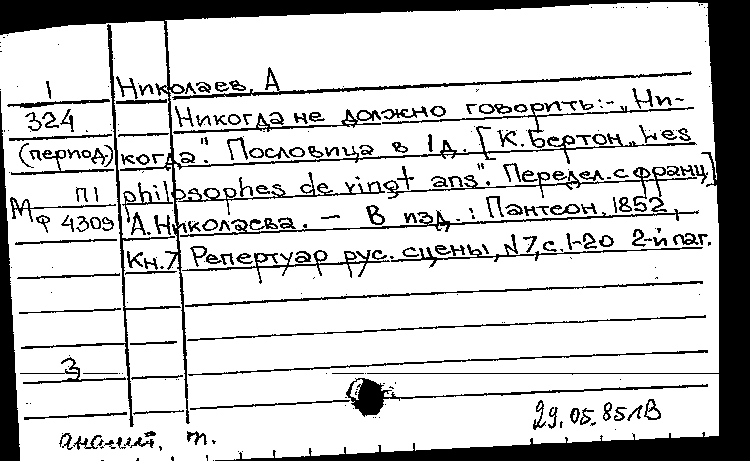 I Николаев, А
324 Никогда не должно говорить:-„Ни-
(период) когда". Пословица в 1д. [К.Бертон „Les
П1 philosophes de vingt ans". Передел. с франц.]
МФ 4309 А.Николаева. — В изд.: Пантеон, 1852,
Кн.7 Репертуар рус. сцены, N7, с.1-20 2-й паг.
3
29.05.85
аналит. т.